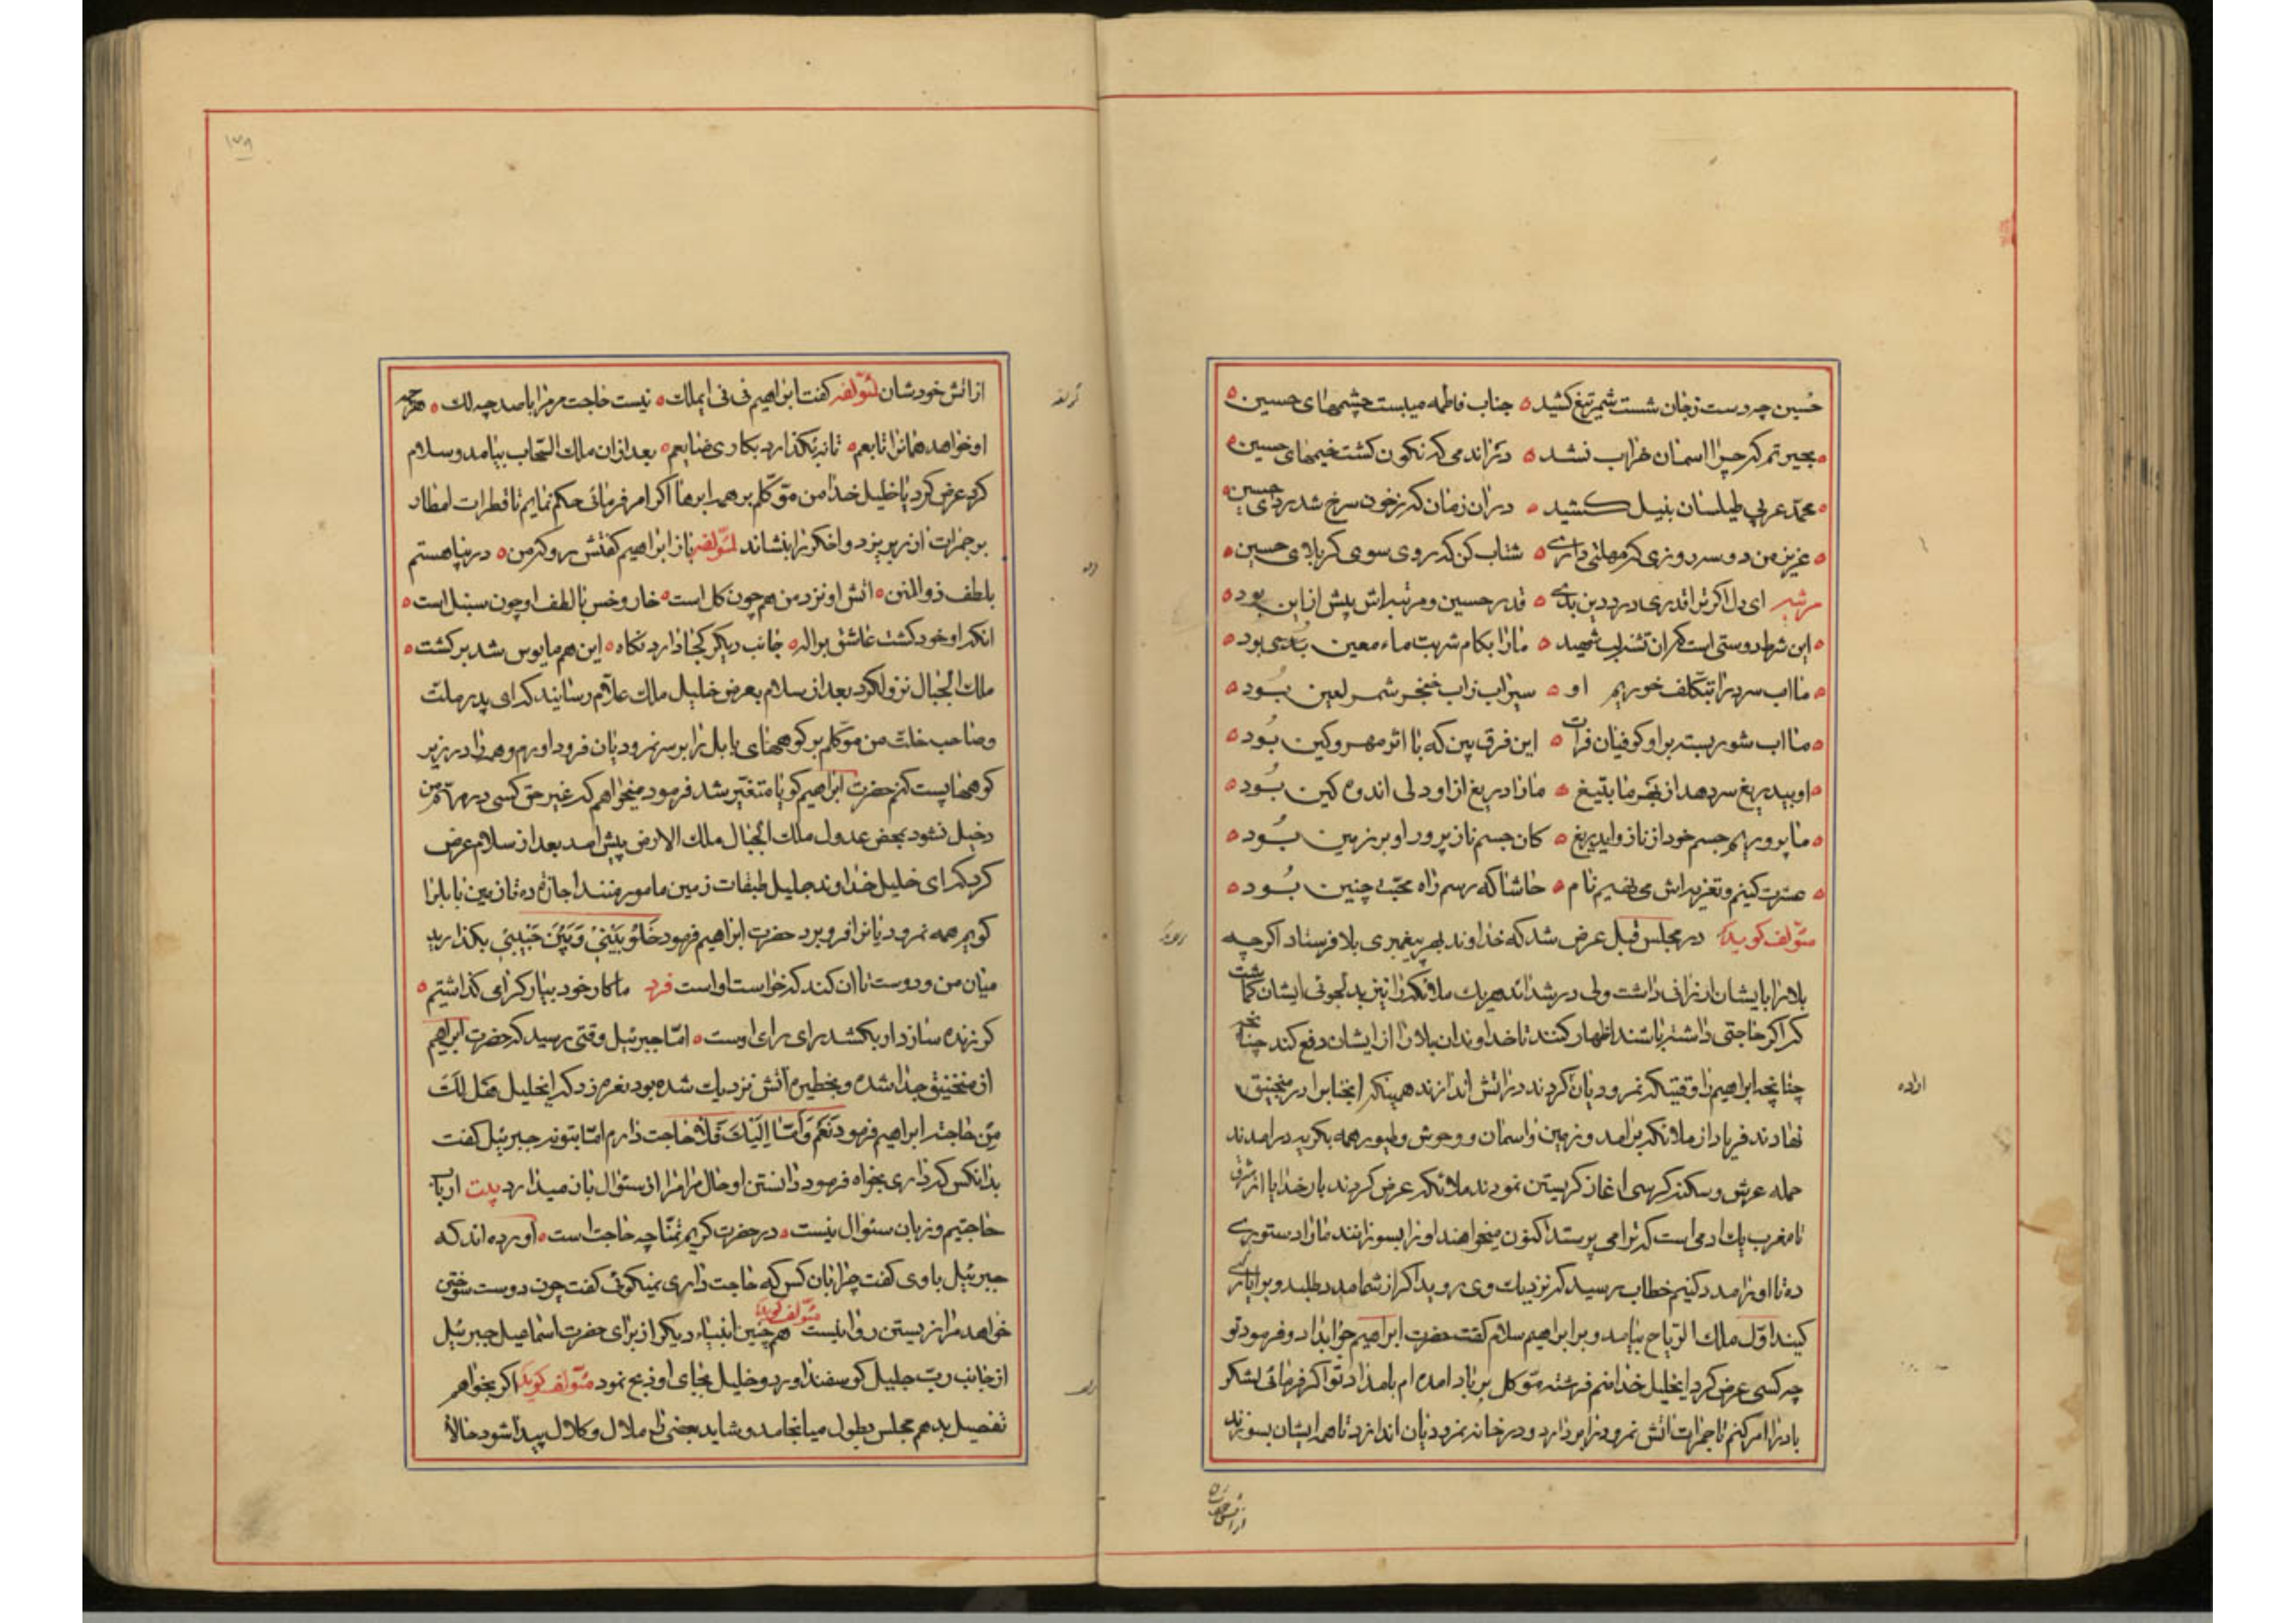 حسین چه دست زجان شست شمر تیغ کشید ه جناب فاطمه میبست چشمهای حسین ه
ه بحیرتم که چرا اسمان خراب نشد ه دران دمی که نکون کشت خیمهای حسین ه
ه محمد عربی طیلسان بنیل کشید ه دران زمان که زخون سرخ شد ردای حسین ه
ه عزیز من دو سه روزی که مهلتی داری ه شتاب کن که روی سوی کربلای حسین ه
مرثیه ای دل اکر ترا قدری درد دین بدی ه قدر حسین و مرتبه اش بیش از این بود ه
ه این شرط دوستی است کزان تشنه لب شهید ه مارا بکام شربت ماء معین بدی بود ه
ه ما اب سرد را بتکلف خوریم او ه سیراب زاب خنجر شمر لعین بُود ه
ه ما اب شور بسته براو کوفیان فرات ه این فرق بین که با اثر مهر و کین بُود ه
ه او بیدریغ سر دهد از بهر ما بتیغ ه مارا دریغ از او دلی اندوه کین بُود ه
ه ما پروریم جسم خود از ناز و ایدریغ ه کان جسم نازپرور او بر زمین بُود ه
ه عشرت کنیم و تعزیه اش می نهیم نام ه حاشا که رسم راه محبّت چنین بُود ه
مؤلف کوید در مجلس قبل عرض شد که خداوند بهر پیغمبری بلا فرستاد اکرچه
بلا را بایشان ارزانی داشت ولی در شداید هر یك ملائکه را نیز بدلجوئی ایشان کماشت
که اکر حاجتی داشته باشند اظهار کنند تا خداوند ان بلا را از ایشان دفع کند چنانچه
چنانچه ابراهیم را وقتیکه نمرودیان کردند در اتش اندازند همینکه انجنابرا در منجنیق
نهادند فریاد از ملائکه برامد و زمین و اسمان و وحوش و طیور همه بکریه درامدند
حمله عرش و سکنه کرسی اغاز کریستن نمودند ملائکه عرض کردند بار خدایا از مشرق
تا مغرب یك ادمی است که ترا می پرستد اکنون میخواهند او را بسوزانند مارا دستوری
ده تا او را مدد کنیم خطاب رسید که نزدیك وی روید اکر از شما مدد طلبد ویرا یاری
کنید اول ملك الریاح بیامد و بر ابراهیم سلام کفت حضرت ابراهیم جواب داد و فرمود تو
چه کسی عرض کرد ایخلیل خدا منم فرشته موکل بر باد امده ام بامداد تو اکر فرمائی لشکر
باد را امر کنم تا جمرات اتش نمرود را بردارد و در خانه نمرودیان اندازد تا همه ایشان بسوزند
اراده
از اتش خودشان
۱۳۸
از اتش خودشان لمؤلفه کفت ابراهیم نی نی ایملك ه نیست حاجت مر مرا با صد چه لك ه هرچه
او خواهد همانرا تابعم ه تا نه بکذارد بکاری ضایعم ه بعد ازان ملك السّحاب بیامد و سلام
کرد عرض کرد یا خلیل خدا من موکلم بر همه ابرها اکر امر فرمائی حکم نمایم تا قطرات امطار
بر جمرات اذر بریزد و اخکر را بنشاند لمؤلفه باز ابراهیم کفتش رو که من ه در پناهستم
بلطف ذوالمنن ه اتش او نزد من هم چون کل است ه خار و خس با لطف او چون سنبل است ه
انکه او خود کشت عاشق بر اله ه جانب دیکر کجا دارد نکاه ه این هم مایوس شد برکشت ه
ملك الجبال نزول کرد بعد از سلام بعرض خلیل ملك علّام رسانید که ای پدر ملت
و صاحب خلت من موکلم بر کوهها کوههای بابل را بر سر نمرودیان فرود اورم و همه را در زیر
کوهها پست کنم حضرت ابراهیم کویا متغیر شد فرمود میخواهم که غیر حق کسی در مهام من
دخیل نشود بمحض عدول ملك الجبال ملك الارض پیش امد بعد از سلام عرض
کرد که ای خلیل خداوند جلیل طبقات زمین مامور منند اجازه ده تا زمین بابل را
کویم همه نمرودیانرا فرو برد حضرت ابراهیم فرمود خَلّوُ بَیْنی وَ بَیْنَ حَبیبی بکذارید
میان من و دوست تا ان کند که خواست او است فرد ما کار خود بیار کرامی کذاشتیم ه
کر زنده سازد او بکشد رای رای اوست ه امّا جبرئیل وقتی رسید که حضرت ابراهیم
از منجنیق جدا شده و بخطیره اتش نزدیك شده بود نعره زد که ایخلیل هَل لَكَ
مِن حاجته ابراهیم فرمود نَعَم وَ اَمّا اِلَیْكَ فَلا حاجت دارم امّا بتو نه جبرئیل کفت
بدانکس که داری بخواه فرمود دانستن او حال مرا مرا از سئوال باز میدارد بیت ارباب
حاجتیم و زبان سئوال نیست ه در حضرت کریم تمنّا چه حاجت است ه اورده اند که
جبرئیل باوی کفت چرا بان کس که حاجت داری نمیکوئی کفت چون دوست سوختن
خواهد مرا زیستن روا نیست مؤلف کوید هم چنین انبیاء دیکر از برای حضرت اسماعیل جبرئیل
از جانب ربّ جلیل کوسفند اورد و خلیل بجای او ذبح نمود مؤلف کوید اکر بخواهم
تفصیل بدهم مجلس بطول میانجامد و شاید بعضی را ملال و کلال پیدا شود حالا